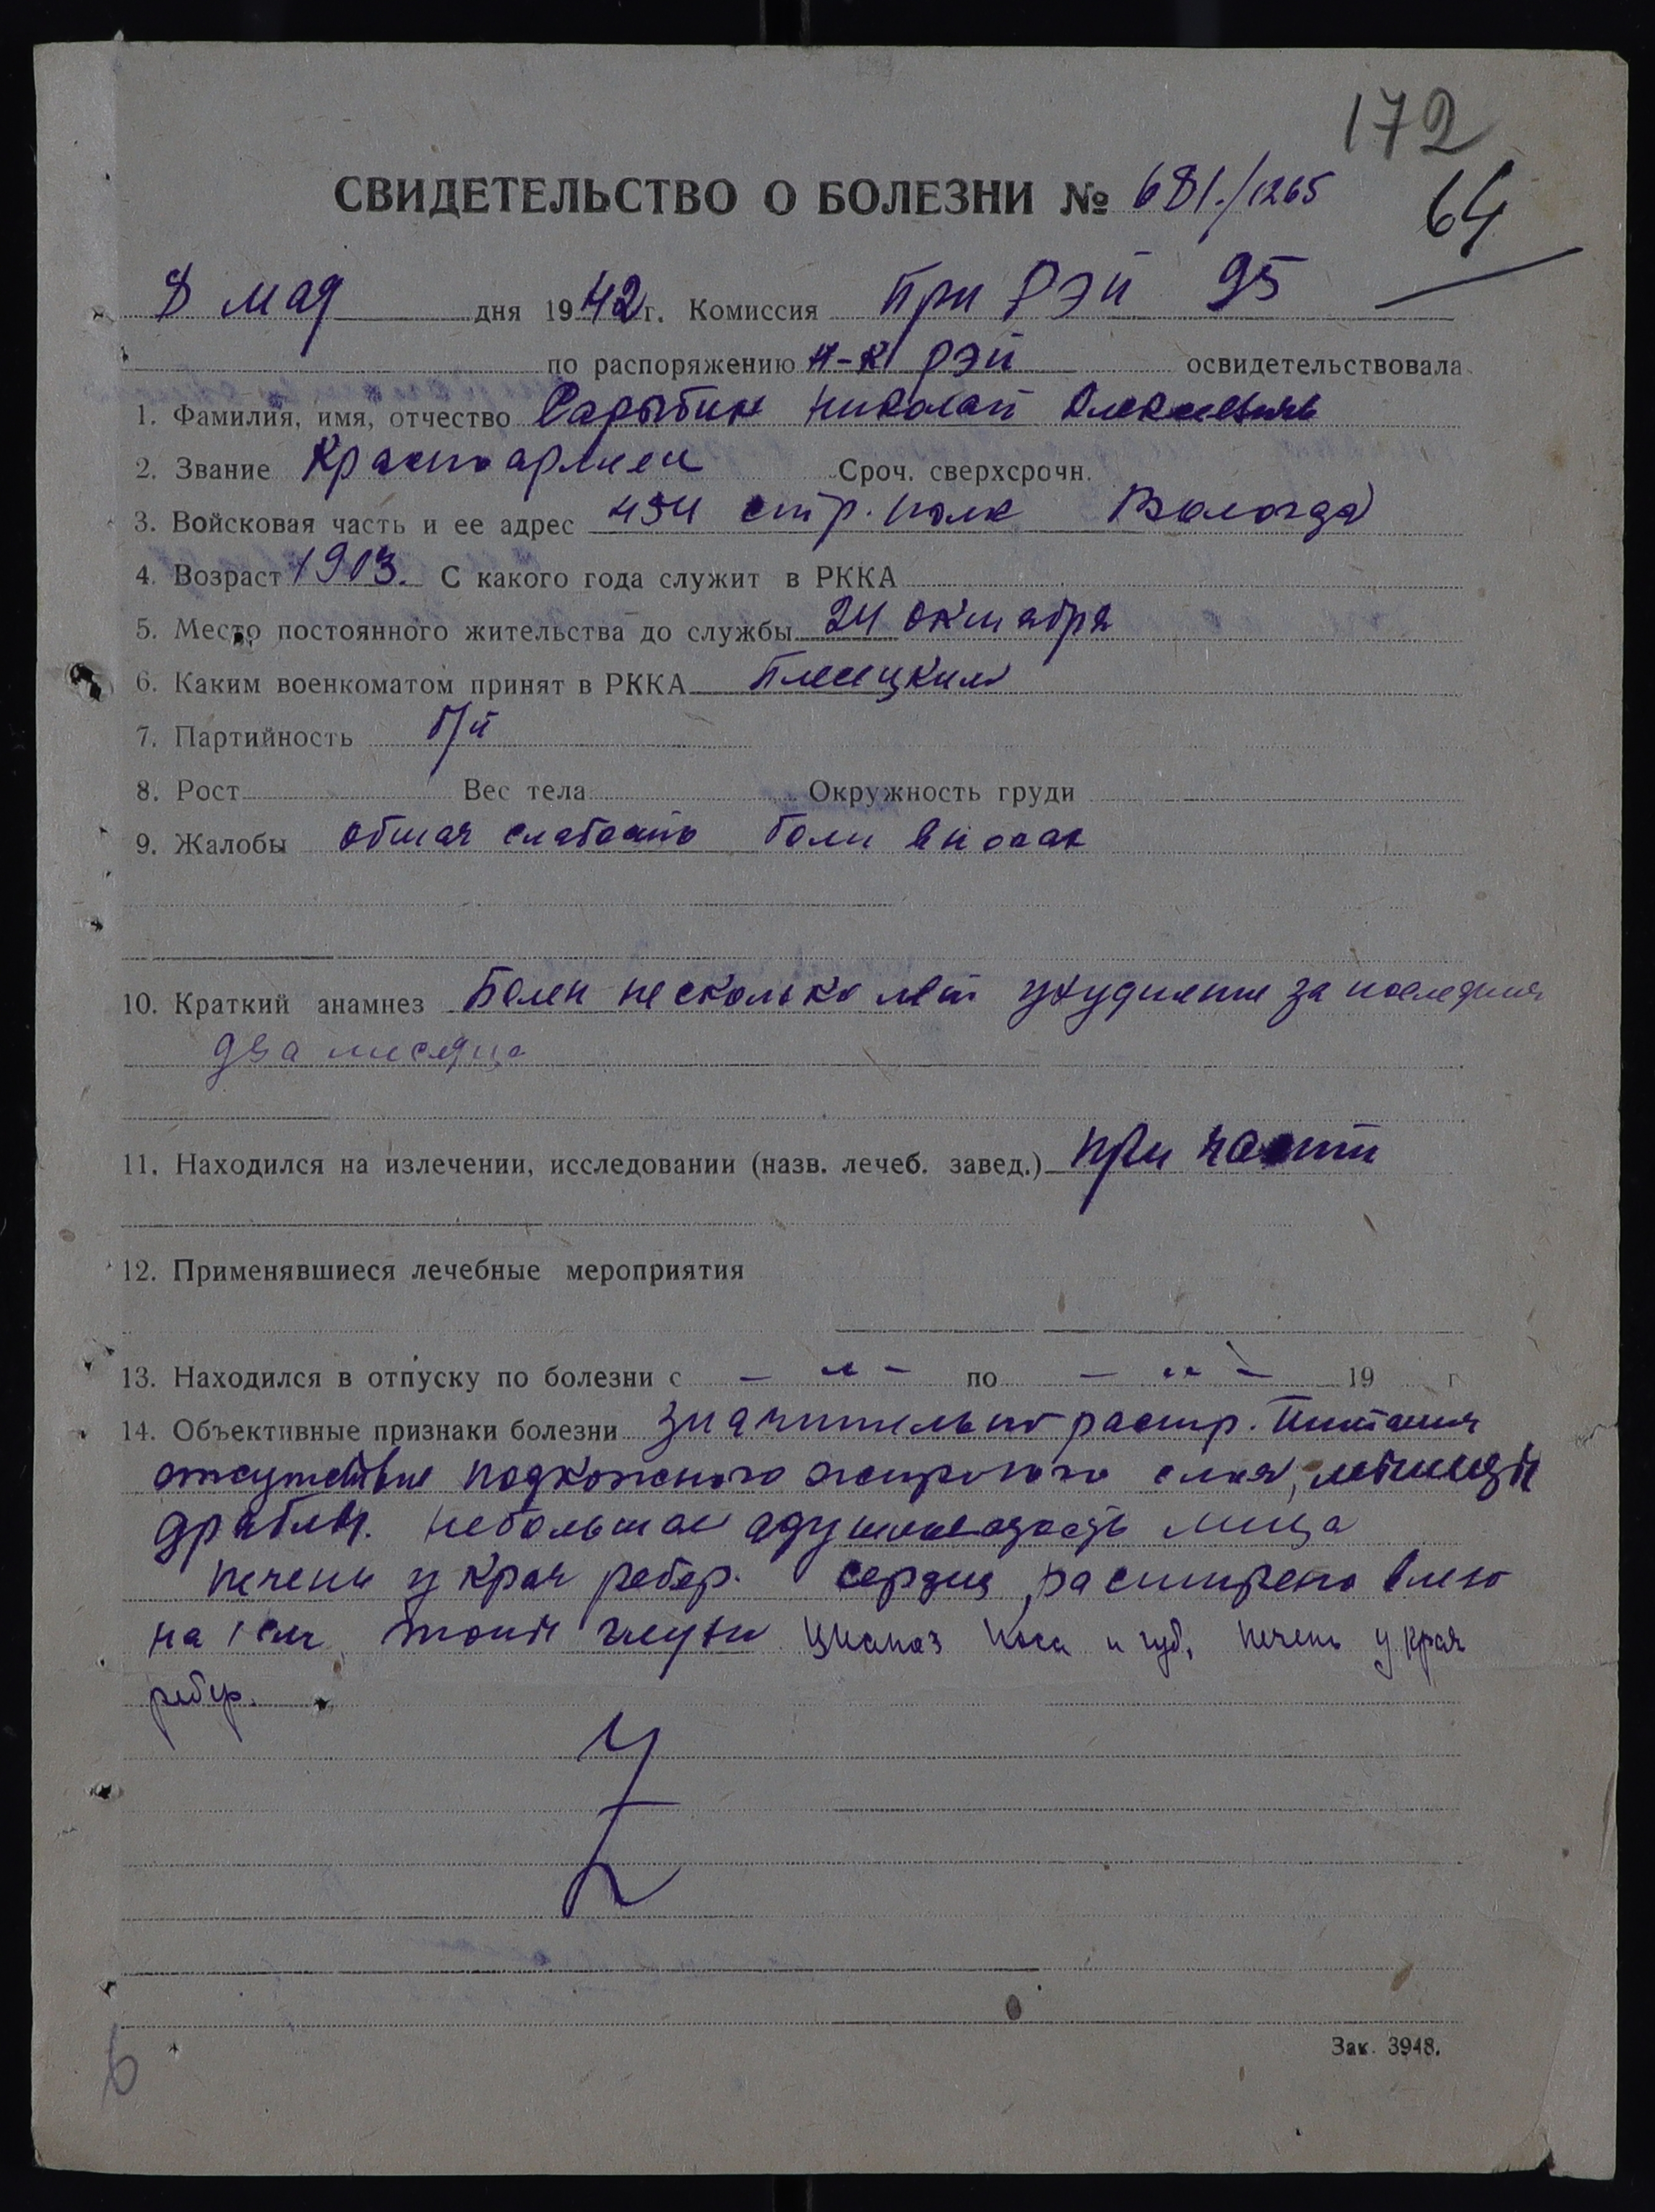 172
СВИДЕТЕЛЬСТВО О БОЛЕЗНИ № 681./1265
64
8 мая дня 1942 г. Комиссия при РЭП 95
по распоряжению н-к РЭП освидетельствовала
1. Фамилия, имя, отчество Николай Алексеевич
2. Звание Красноармеец Сроч. сверхсрочн.
3. Войсковая часть и ее адрес 454 стр. полк Вологда
4. Возраст 1903. С какого года служит в РККА
5. Место постоянного жительства до службы 24 октября
6. Каким военкоматом принят в РККА Плесецким
7. Партийность б/п
8. Рост Вес тела Окружность груди
9. Жалобы общая слабость боли в ногах
10. Краткий анамнез Болен несколько лет ухудшение за последния
два месяца
11. Находился на излечении, исследовании (назв. лечеб. завед.) при части
12. Применявшиеся лечебные мероприятия
13. Находился в отпуску по болезни с — " — по — " — 19 г
14. Объективные признаки болезни значительно расстр. питания
отсутствие подкожного жирового слоя, мышцы
дряблы. небольшая одутловатость лица
печень у края ребер. сердце расширено влево
на 1 см, тоны глухи цианоз носа и губ, печень у края
ребер.
Зак. 3948.
6